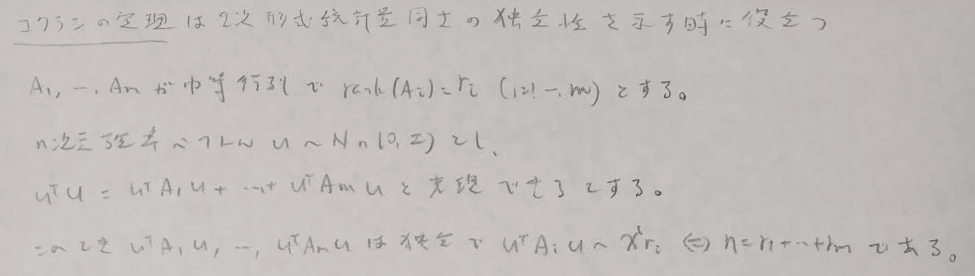 コクランの定理は2次形式統計量同士の独立性を示す時に役立つ
A₁, …, Aₘが巾等行列で rank(Aᵢ)=rᵢ (i=1…,m)とする。
n次元確率ベクトル u ~ Nₙ(0, I)とし、
uᵀu = uᵀA₁u + …+ uᵀAₘu と表現できるとする。
このとき uᵀA₁u, …, uᵀAₘu は独立で uᵀAᵢu ~ χ²rᵢ ⇔ n=r₁+…+rₘ である。